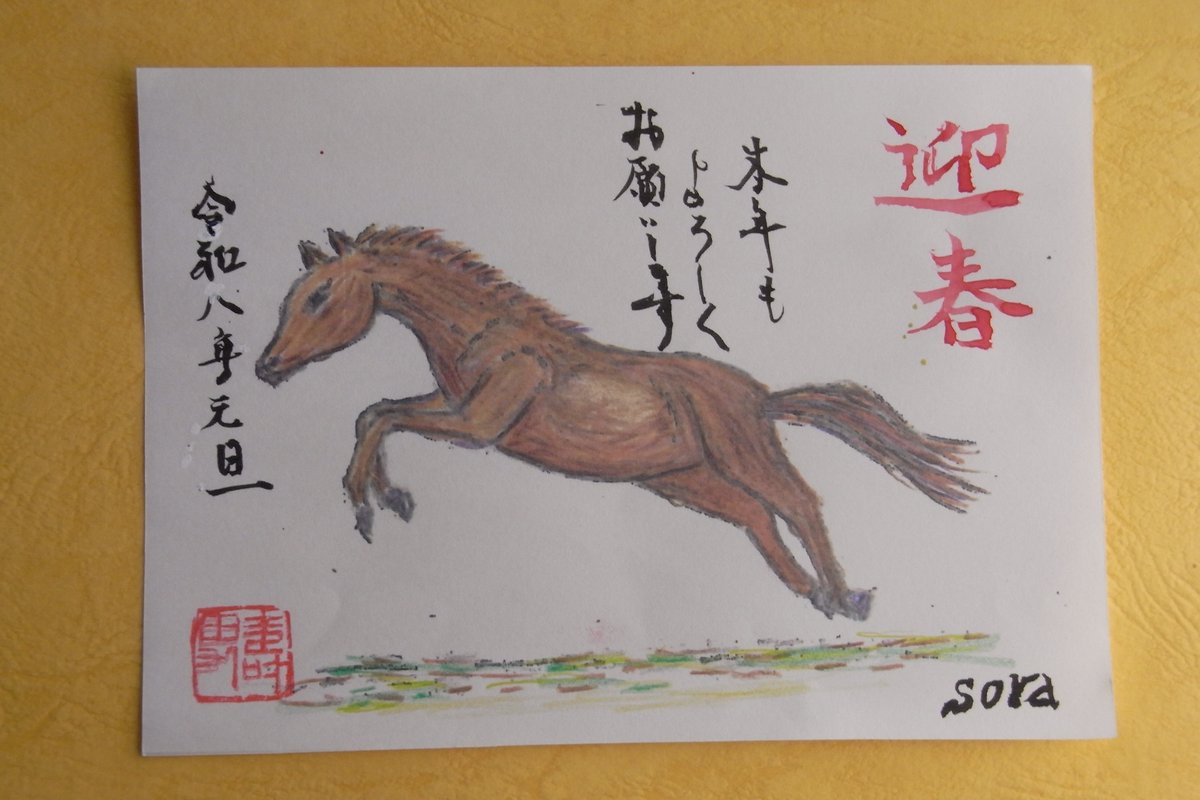 迎春
本年も
よろしく
お願いします
令和八年元旦
sora